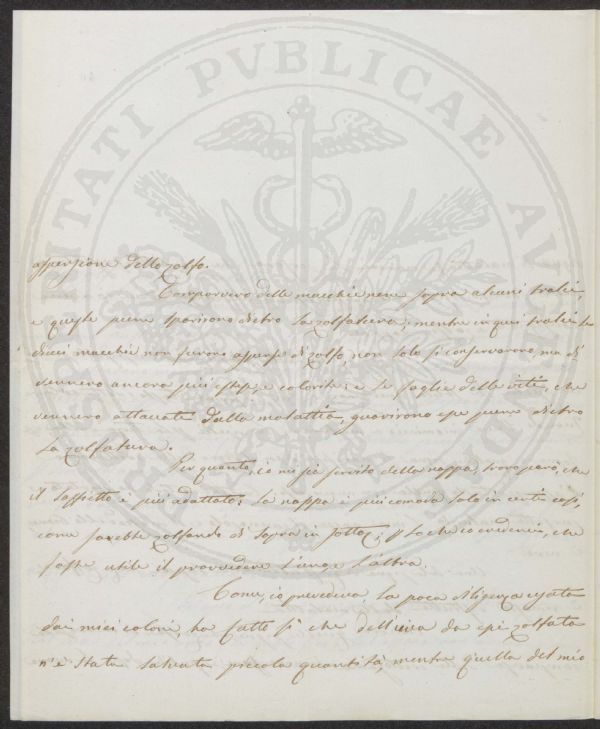 PROSPERITATI PVBLICAE AVGENDAE
aspersione dello zolfo.
Comparvero delle macchie nere sopra alcuni tralci,
e queste pure sparirono dietro la zolfatura; mentre in quei tralci
macchie non furono asperse di zolfo, non solo si conservarono, ma di
vennero ancora più estese e colorite; e le foglie delle viti, che
vennero attaccate dalla malattia, guarirono esse pure dietro
la zolfatura.
Per quanto, io mi sia servito della nappa trovo però, che
il soffietto è più adattato; la nappa è più comoda solo in certi casi,
come sarebbe zolfando di sopra in sotto; che io crederei, che
fosse utile il provvedere l'uno e l'altra.
Come, io prevedeva la poca diligenza usata
dai miei coloni, ha fatto sì che dell'uva da essi zolfata
n'è stata salvata piccola quantità, mentre quella del mio